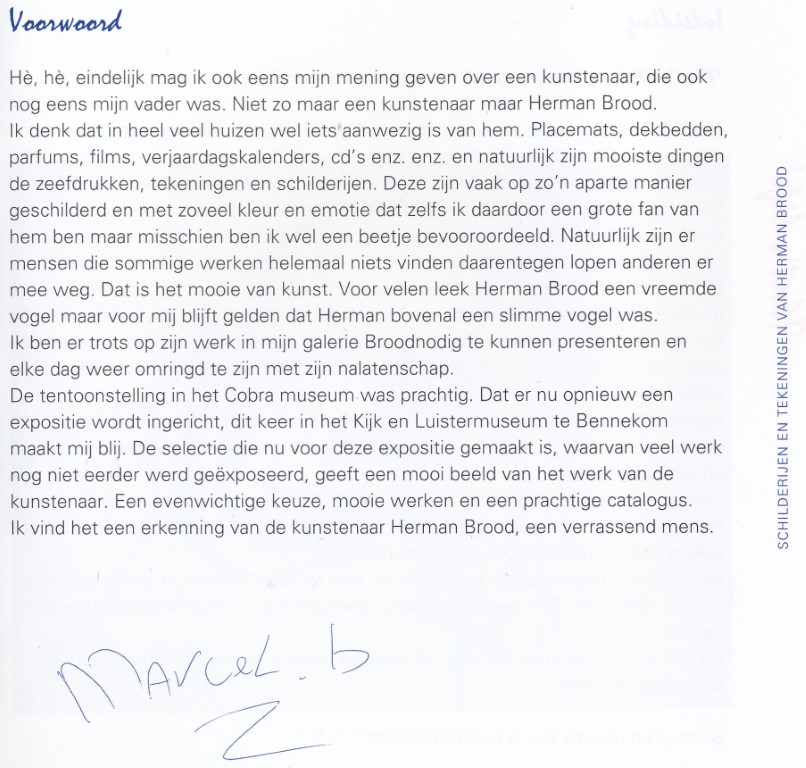 Voorwoord
Hè, hè, eindelijk mag ik ook eens mijn mening geven over een kunstenaar, die ook
nog eens mijn vader was. Niet zo maar een kunstenaar maar Herman Brood.
Ik denk dat in heel veel huizen wel iets aanwezig is van hem. Placemats, dekbedden,
parfums, films, verjaardagskalenders, cd's enz. enz. en natuurlijk zijn mooiste dingen
de zeefdrukken, tekeningen en schilderijen. Deze zijn vaak op zo'n aparte manier
geschilderd en met zoveel kleur en emotie dat zelfs ik daardoor een grote fan van
hem ben maar misschien ben ik wel een beetje bevooroordeeld. Natuurlijk zijn er
mensen die sommige werken helemaal niets vinden daarentegen lopen anderen er
mee weg. Dat is het mooie van kunst. Voor velen leek Herman Brood een vreemde
vogel maar voor mij blijft gelden dat Herman bovenal een slimme vogel was.
Ik ben er trots op zijn werk in mijn galerie Broodnodig te kunnen presenteren en
elke dag weer omringd te zijn met zijn nalatenschap.
De tentoonstelling in het Cobra museum was prachtig. Dat er nu opnieuw een
expositie wordt ingericht, dit keer in het Kijk en Luistermuseum te Bennekom
maakt mij blij. De selectie die nu voor deze expositie gemaakt is, waarvan veel werk
nog niet eerder werd geëxposeerd, geeft een mooi beeld van het werk van de
kunstenaar. Een evenwichtige keuze, mooie werken en een prachtige catalogus.
Ik vind het een erkenning van de kunstenaar Herman Brood, een verrassend mens.
Marcel. b
SCHILDERIJEN EN TEKENINGEN VAN HERMAN BROOD